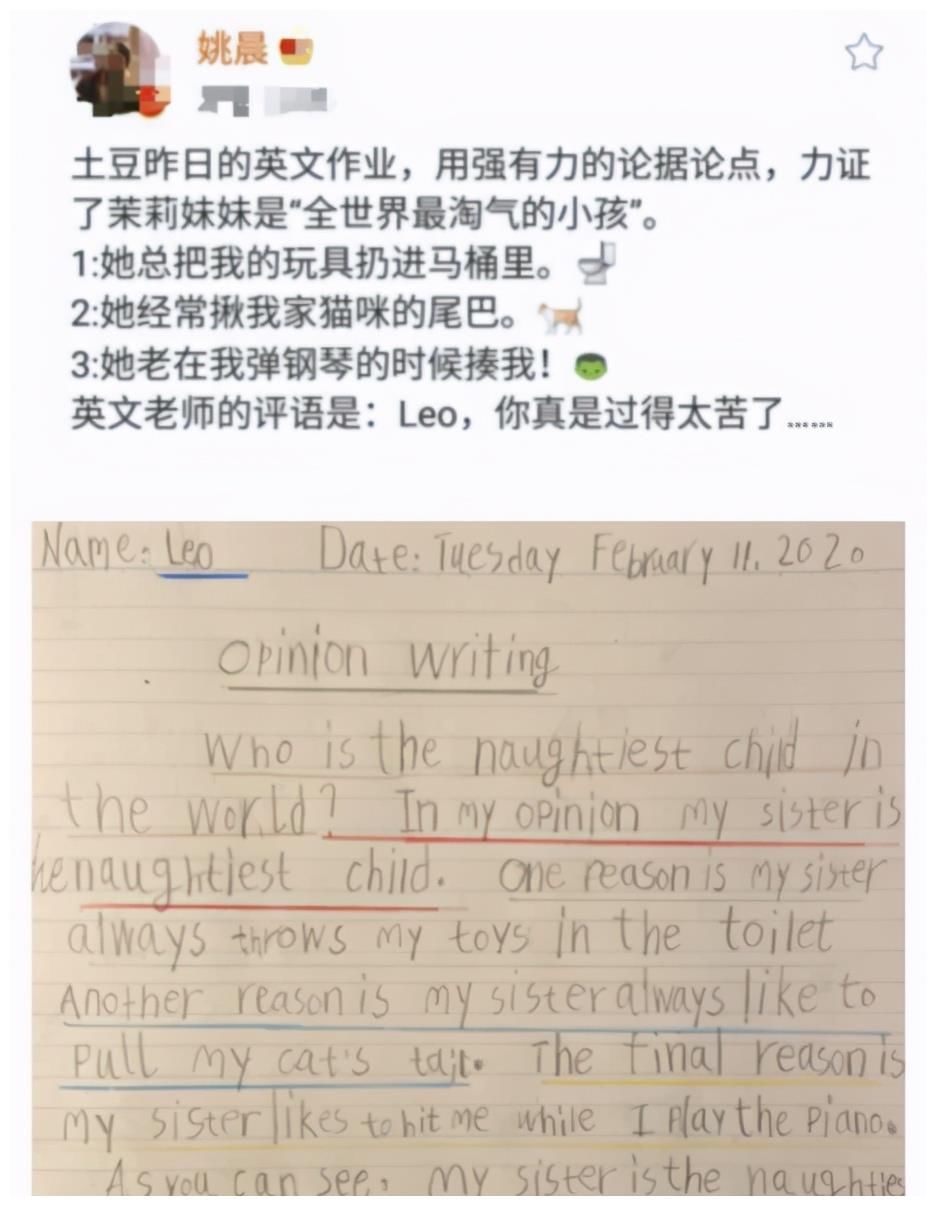 姚晨
土豆昨日的英文作业，用强有力的论据论点，力证
了茉莉妹妹是“全世界最淘气的小孩”。
1:她总把我的玩具扔进马桶里。
2:她经常揪我家猫咪的尾巴。
3:她老在我弹钢琴的时候揍我！
英文老师的评语是：Leo，你真是过得太苦了……
Name: Leo Date: Tuesday February 11. 2020
Opinion Writing
Who is the naughtiest child in
the world? In my opinion my sister is
he naughtiest child. One reason is my sister
always throws my toys in the toilet
Another reason is my sister always like to
pull my cat's tail. The final reason is
my sister likes to hit me while I play the piano.
As you can see, my sister is the naughties